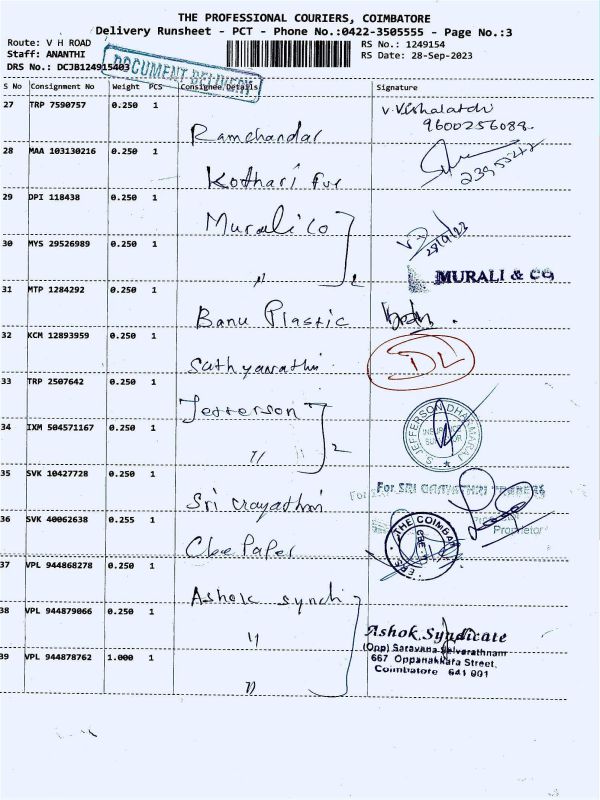 THE PROFESSIONAL COURIERS, COIMBATORE
Delivery Runsheet - PCT - Phone No.:0422-3505555 - Page No.:3
Route: V H ROAD
RS No.: 1249154
Staff: ANANTHI
RS Date: 28-Sep-2023
DRS No.: DCJB124915403
DOCUMENT DELIVERY
S No Consignment No Weight PCS Consignee Details Signature
27 TRP 7590757 0.250 1 Ramchandar
9600256088
28 MAA 103130216 0.250 1 Kothari
29 DPI 118438 0.250 1 Murali co
28/9/23
30 MYS 29526989 0.250 1 〃 2
MURALI & CO,
31 MTP 1284292 0.250 1 Banu Plastic
32 KCM 12893959 0.250 1
DL
33 TRP 2507642 0.250 1 Jefferson
S. JEFFERSON DHARMARAJ
34 IXM 504571167 0.250 1 〃 2
35 SVK 10427728 0.250 1 Sri Gayathri
For SRI GAYATHRI TRADERS
Proprietor
36 SVK 40062638 0.255 1 Cbe Paper
THE COIMBA
CBE
37 VPL 944868278 0.250 1 Ashok Syndi
38 VPL 944879066 0.250 1 〃
Ashok Syndicate
(Opp) Saravana Selvarathnam
667 Oppanakkara Street,
Coimbatore 641 001
39 VPL 944878762 1.000 1 〃